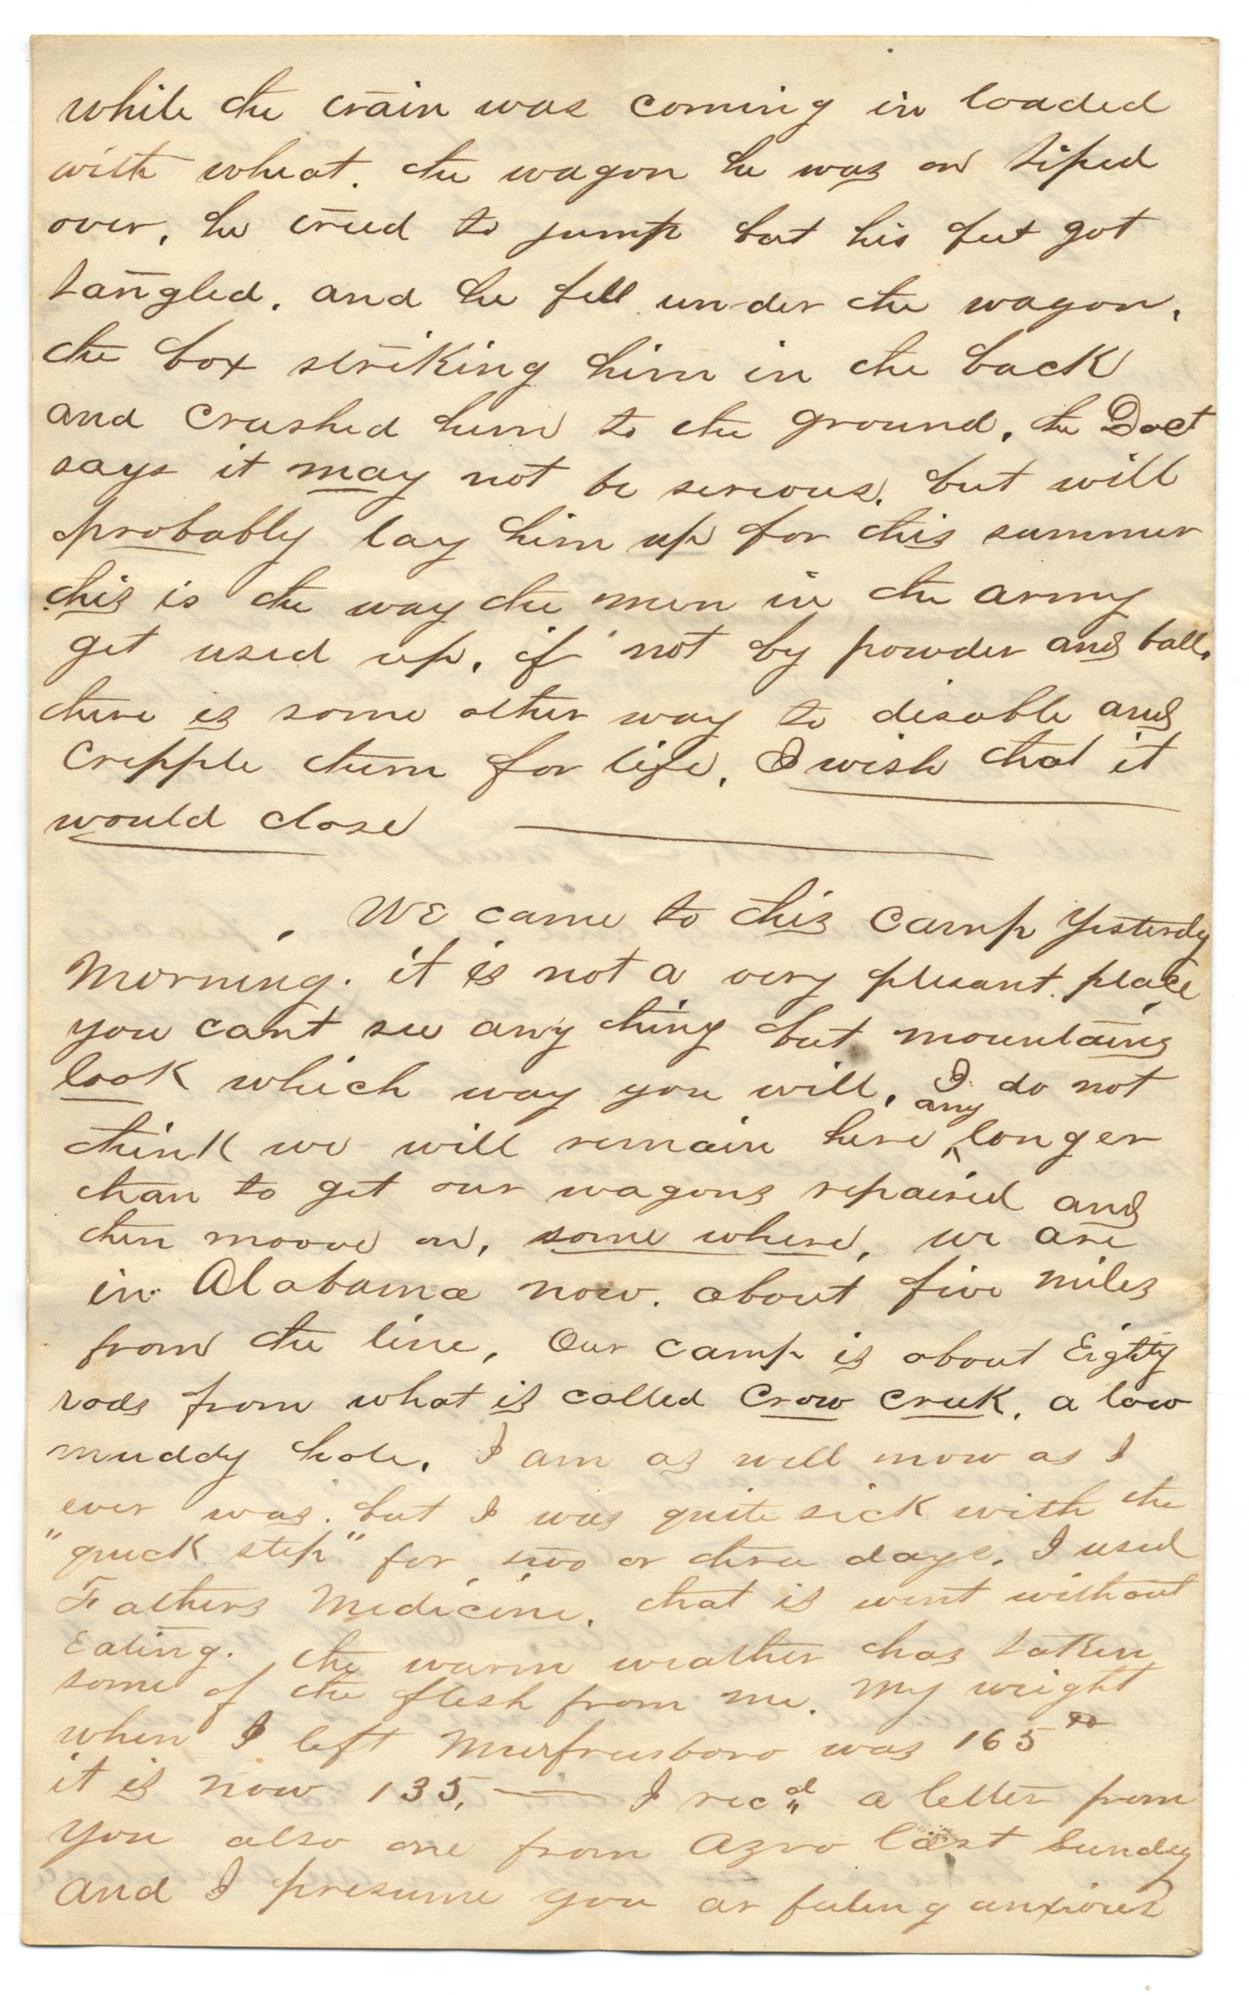 while the train was coming in loaded
with wheat. the wagon he was on tiped
over, he tried to jump but his feet got
tangled. and he fell under the wagon,
the box striking him in the back
and crushed him to the ground, the Doct
says it may not be serious. but will
probably lay him up for this summer
this is the way the men in the army
get used up, if not by powder and ball,
there is some other way to disable and
cripple them for life, I wish that it
would close
We came to this camp Yesterdy
Morning. it is not a very plesant place
you cant see any thing but mountains
look which way you will, I do not
think we will remain here any longer
than to get our wagons repaired and
then moove on, some where, we are
in Alabama now. about five miles
from the line, Our camp is about Eighty
rods from what is called Crow Creek, a low
muddy hole, I am as well now as I
ever was. but I was quite sick with the
"quick step" for two or three days. I used
Fathers Medicine, that is went without
Eating. the warm weather has taken
some of the flesh from me. My weight
when I left Murfreesboro was 165
it is now 135, — I recd a letter from
you also one from Azro last Sunday
and I presume you ar feeling anxious